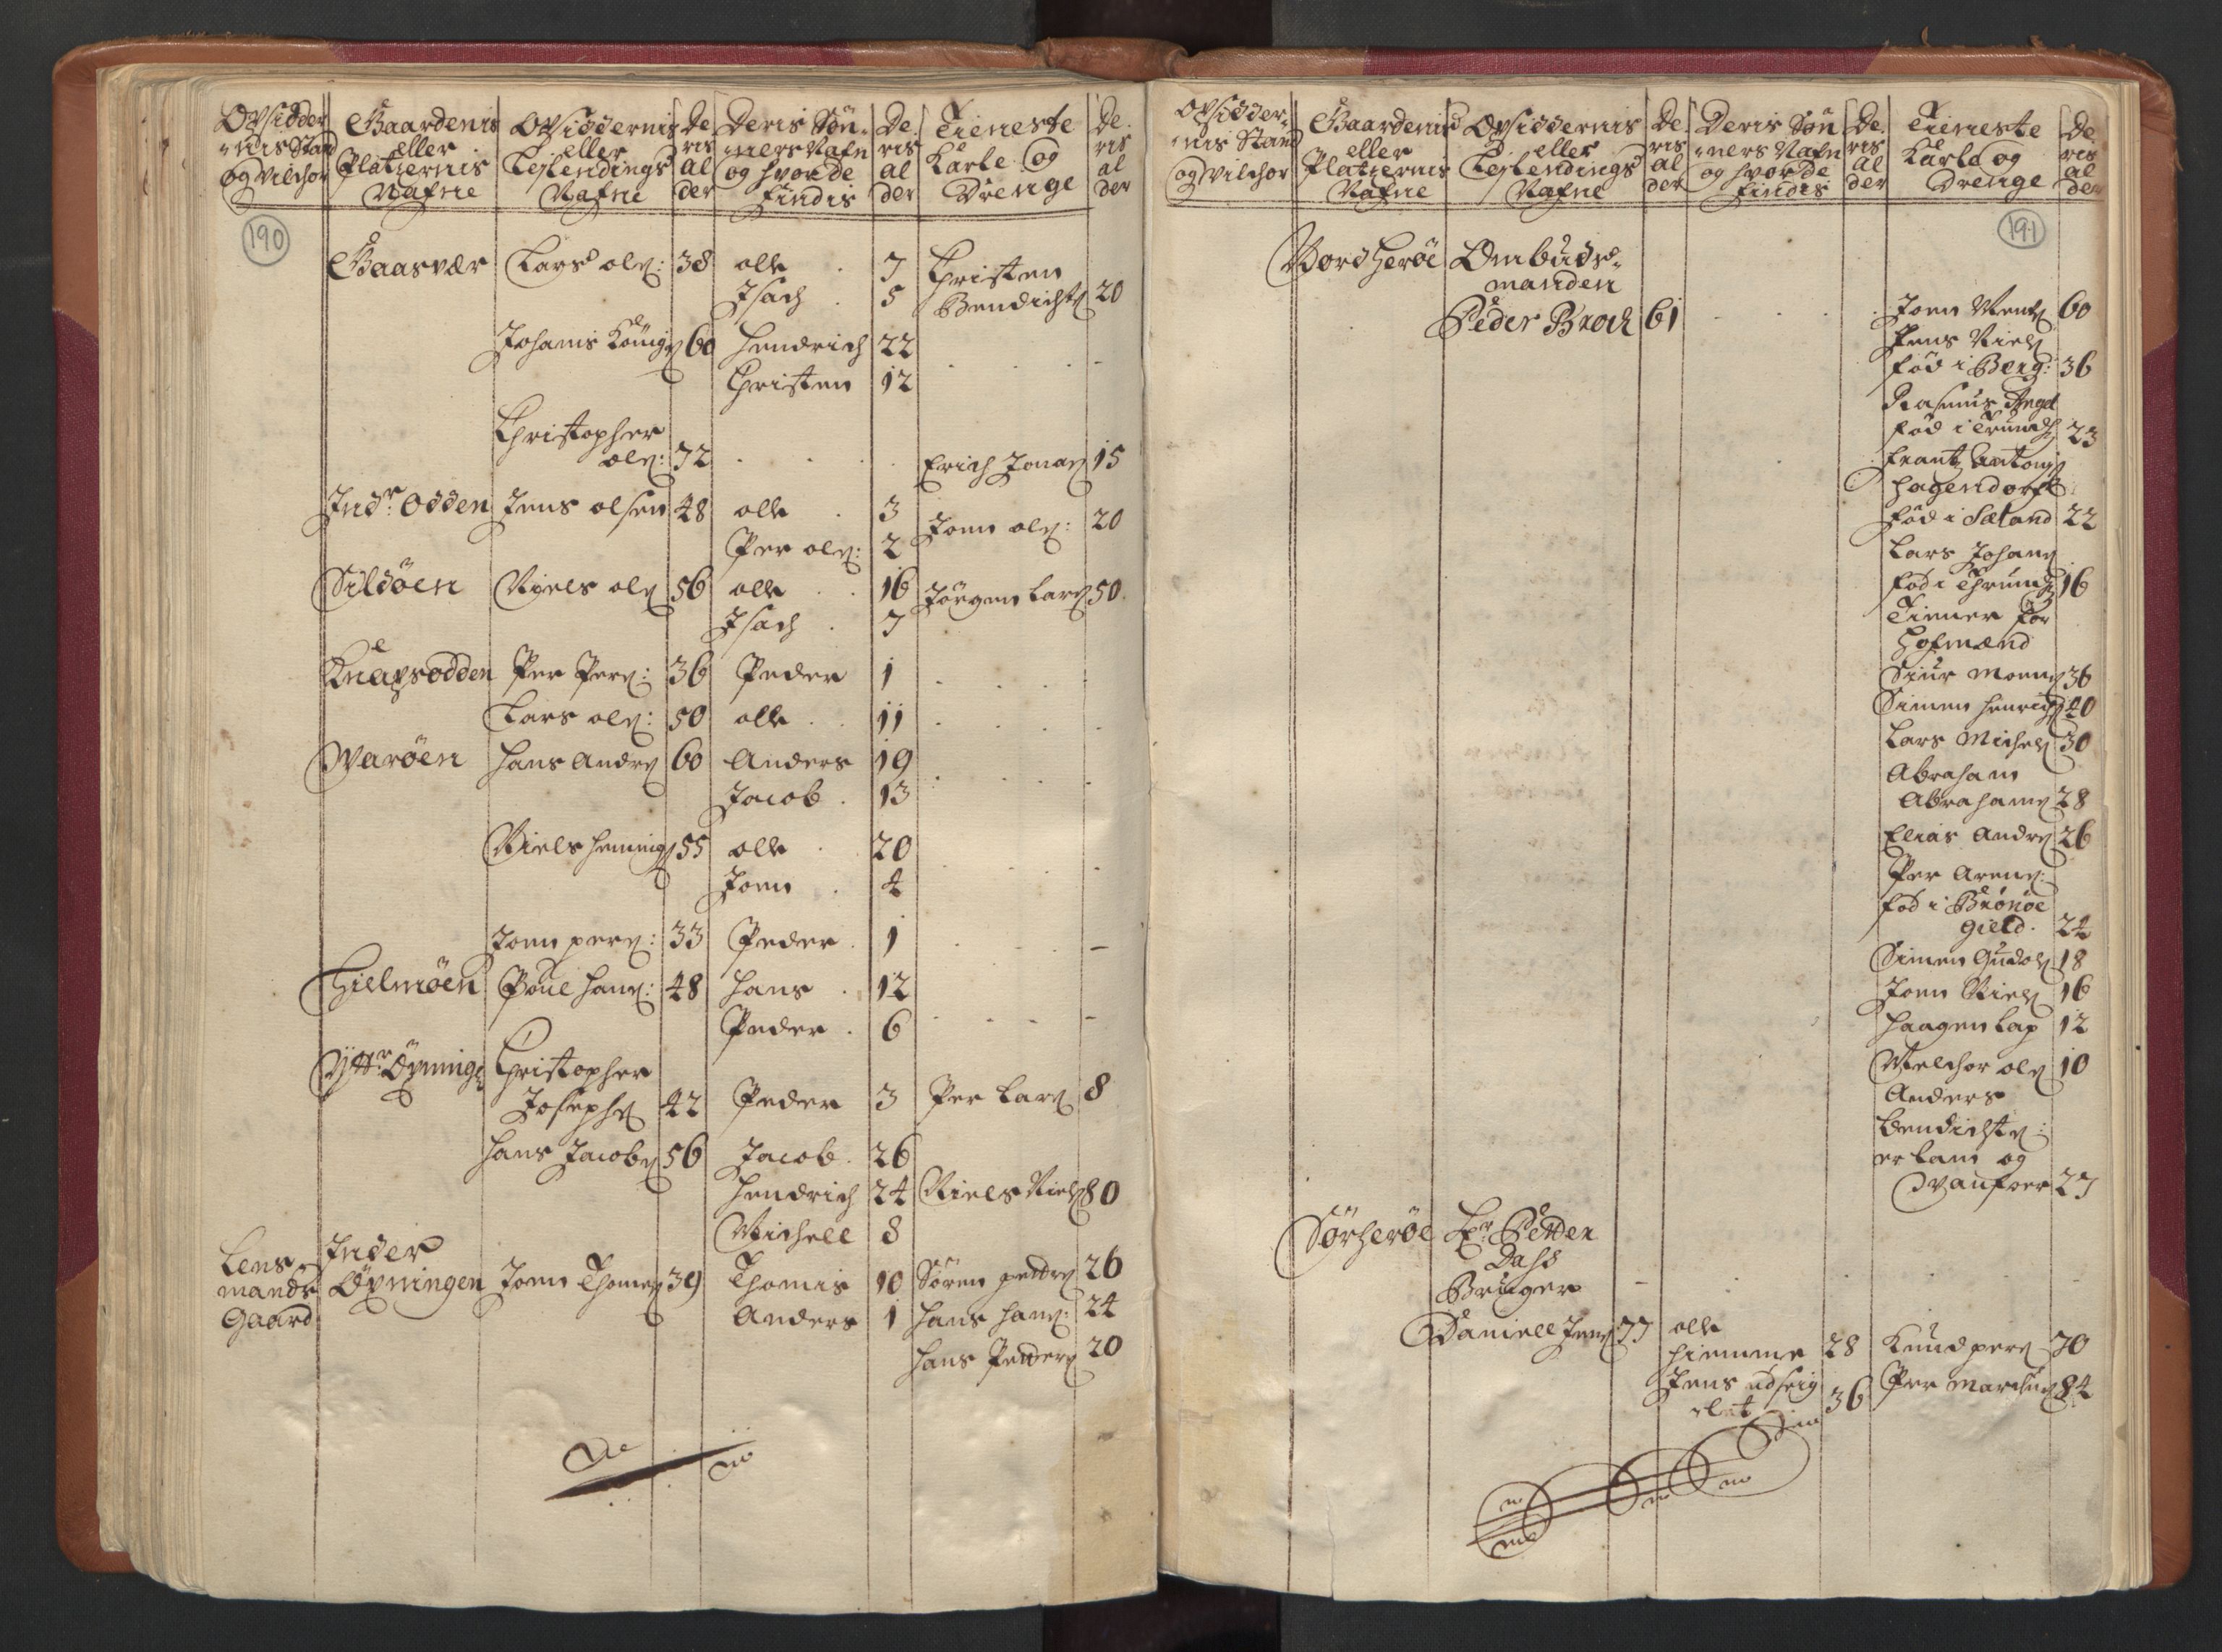 Opsidder nis Stand og Vilchor | Gaardenis eller Platzernis Nafne | Opsiddernis eller Leylendings Nafne | De ris al der | Deris Sön ners Nafn og hvor de findis | De ris al der | Tieneste Karle og Drenge | De ris al der
190
Gaasvær | Lars ols: | 38 | olle | 7 | Christen
Isach | 5 | Bendichts | 20
Johanis Königs | 60 | Hendrich | 22
Christen | 12
Christopher
ols: | 72 | Erich Jonas | 15
Indr: Odden | Jens olsen | 48 | olle | 3 | Joen ols: | 20
Per ols: | 2
Sildöen | Niels ols | 56 | olle | 16 | Jörgen Lars | 50
Isach | 7
Knapsodden | Per Pers: | 36 | Peder | 1
Lars ols: | 50 | olle | 11
Waröen | Hans Andrs | 60 | Anders | 19
Jacob | 13
Niels Hemings | 55 | olle | 20
Joen | 4
Joen pers: | 33 | Peder | 1
Hielmöen | Poue Hans: | 48 | Hans | 12
Peder | 6
Ytt: Öyning | Christopher
Josephs | 42 | Peder | 3 | Per Lars | 8
Hans Jacobs | 56 | Jacob | 26
Hendrich | 24 | Niels Niels | 80
Michell | 8
Lens | Inder
mands | Öyningen | Joen Thomes | 39 | Thomis | 10 | Sören petters | 26
Gaard | Anders | 1 | Hans Hans: | 24
Hans Petters | 20
Opsidder nis Stand og Vilchor | Gaardenis eller Platzernis Nafne | Opsiddernis eller Leylendings Nafne | De ris al der | Deris Sön ners Nafn og hvor de findis | De ris al der | Tieneste Karle og Drenge | De ris al der
191
Nordheröe | Ombuds
manden
Peder Broch | 61 | Joen Ments | 60
Jens Niels
föd i Berg: | 36
Rasmus Angel
föd i Trundh | 23
frantz Antonj
Hagendorph
föd i Sæland | 22
Lars Johans
föd i Thrundh | 16
Tiener for
Hofmænd
Siur Mons | 36
Simen Henrichs | 40
Lars Michels | 30
Abraham
Abrahams | 28
Elias Andrs | 26
Per Arens:
föd i Brönöe
gield. | 24
Simen Gudols | 18
Joen Niels | 16
Haagen Lap | 12
Melchor ols | 10
Anders
Bendichts:
er lam og
vanför | 27
Sörheröe | Hr: Petter
Dass
Bruger
Daniell Jens | 77 | olle
hiemme | 28 | Knud pers | 70
Jens udseig
let | 36 | Per Marchus | 84